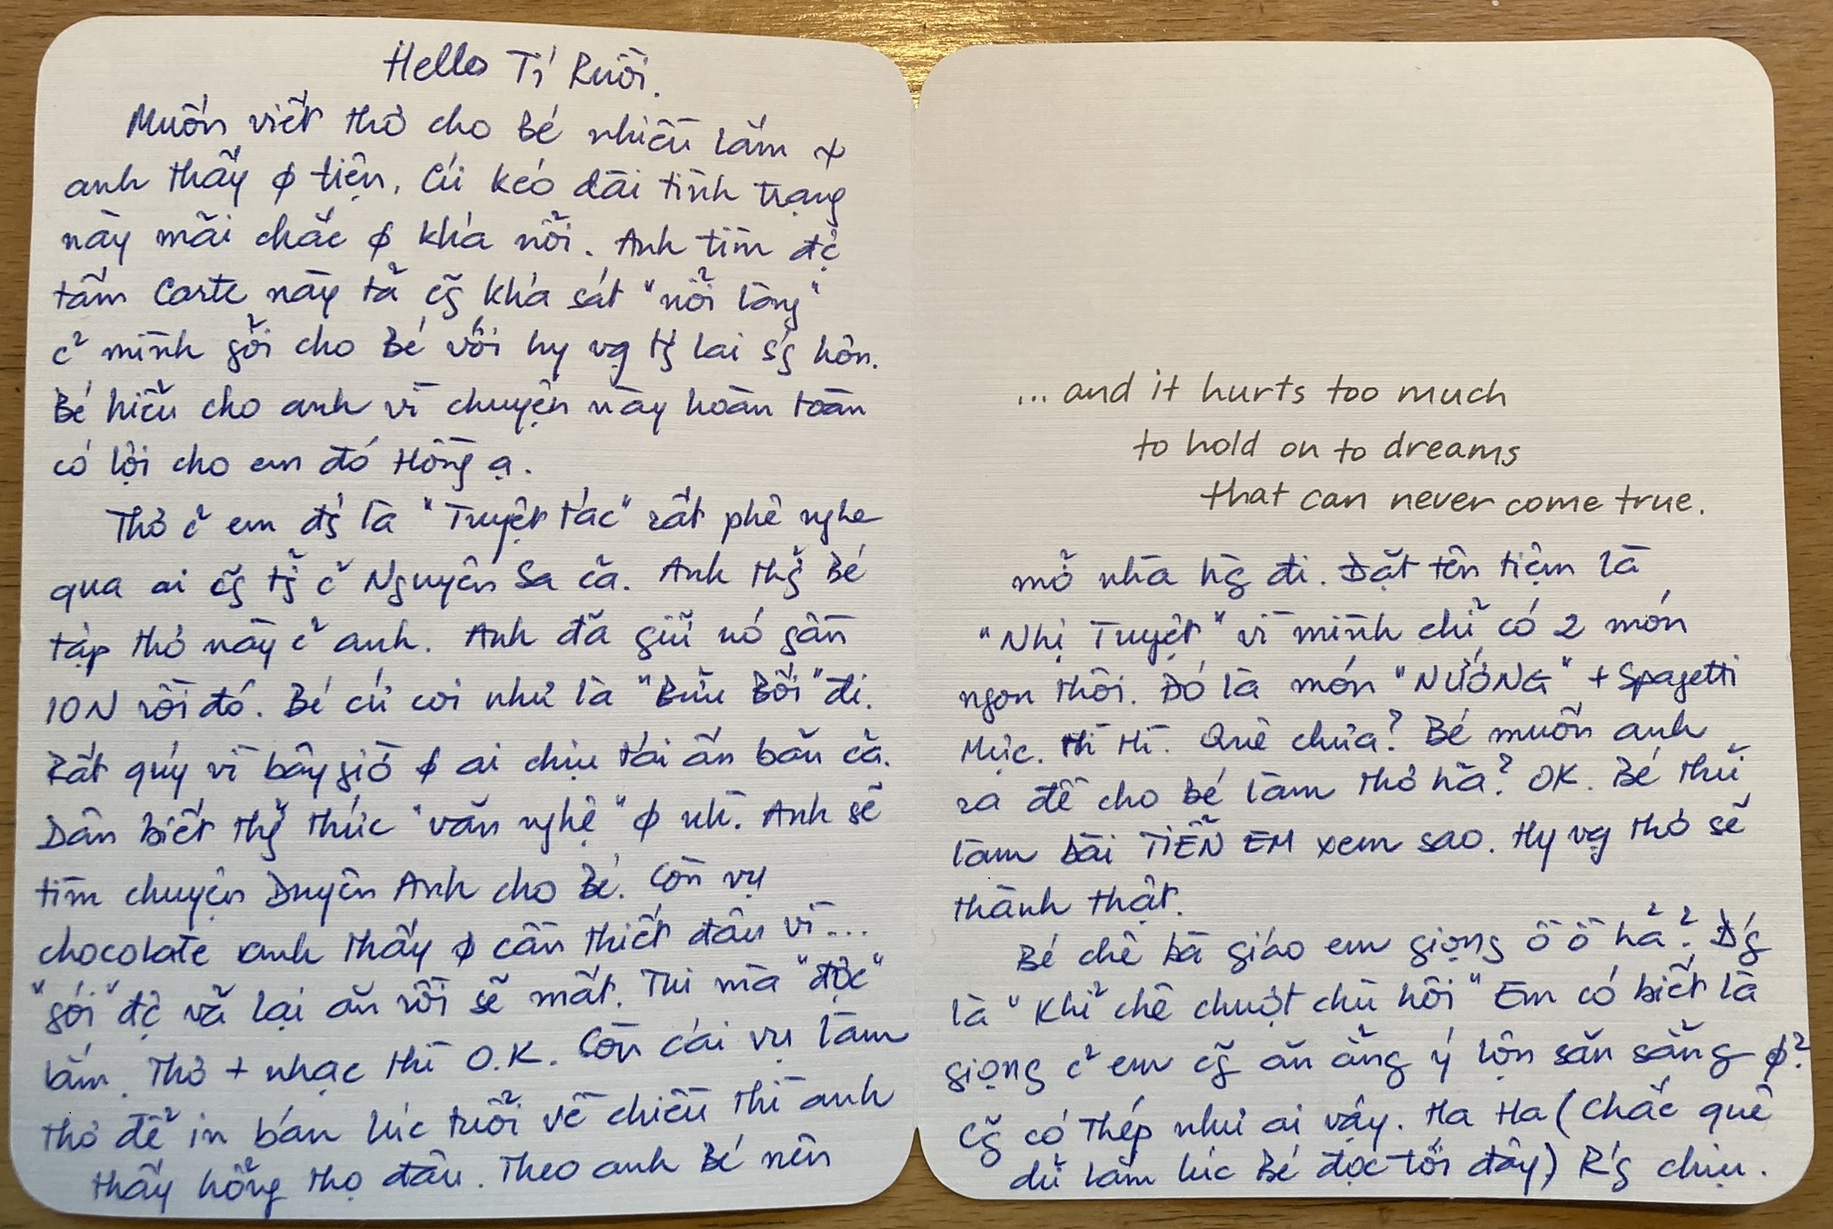 Hello Tí Ruồi.
Muốn viết thơ cho Bé nhiều lắm
anh thấy ϕ tiện. Cứ kéo dài tình trạng
này mãi chắc ϕ khá nổi. Anh tìm đc̣
tấm Carte này tả cg̃ khá sát "nỗi lòng"
c̉ mình gởi cho Bé với hy vg tg lai sg hơn.
Bé hiểu cho anh vì chuyện này hoàn toàn
có lợi cho em đó Hồng ạ.
Thơ c̉ em đg là "Tuyệt tác" rất phê nghe
qua ai cg̃ tg̉ c̉ Nguyên Sa cả. Anh thg̉ Bé
tập thơ này c̉ anh. Anh đã giữ nó gần
10N rồi đó. Bé cứ coi như là "Bửu Bối" đi.
Rất quý vì bây giờ ϕ ai chịu tái ấn bản cả.
Dân biết thg̉ thức "văn nghệ" ϕ nh. Anh sẽ
tìm chuyện Duyên Anh cho Bé. Còn vụ
chocolate anh thấy ϕ cần thiết đâu vì...
"gói" đc̣ vả lại ăn rồi sẽ mất. Thi mà "độc"
lắm. Thơ + nhạc thì O.K. Còn cái vụ làm
thơ để in bán lúc tuổi về chiều thì anh
thấy hổng thọ đâu. Theo anh Bé nên
...and it hurts too much
to hold on to dreams
that can never come true.
mở nhà hg̀ đi. Đặt tên tiệm là
"Nhị Tuyệt" vì mình chỉ có 2 món
ngon thôi. Đó là món "NƯỚNG" + Spagetti
Mực. Hì Hì. Quê chưa? Bé muốn anh
ra đề cho bé làm thơ hả? OK. Bé thử
làm bài TIỄN EM xem sao. Hy vg thơ sẽ
thành thật.
Bé chê bà giáo em giọng ồ ồ hả? Đg
là "Khỉ chê chuột chù hôi" Em có biết là
giọng c̉ em cg̃ ăn ẳng ý lộn săn sẳng ϕ?
Cg̃ có Thép như ai vậy. Ha Ha (Chắc quê
dữ lắm lúc Bé đọc tới đây) Rg chịu.